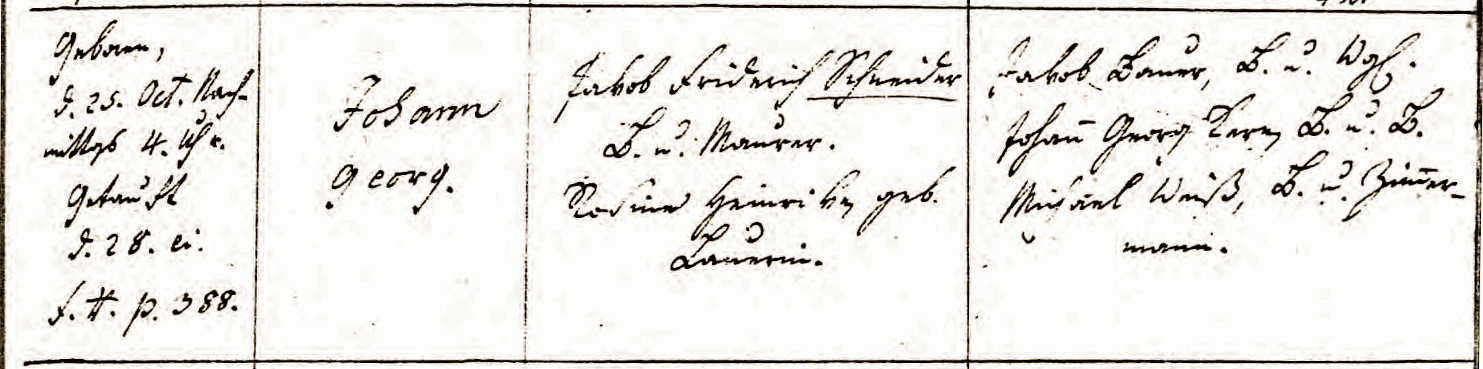 Geboren,
d. 25. Oct. Nach-
mittgs 4. Uhr.
Getauft
d. 28. ei.
f. t. p. 388.
Johann
Georg.
Jakob Friderich Schneider
B. u. Maurer.
Rosine Heinrike, geb.
Bauerin.
Jakob Bauer, B. u. Wgl.
Johan̄ Georg Kern, B. u. B.
Michael Weiß, B. u. Zim̄er-
mann.